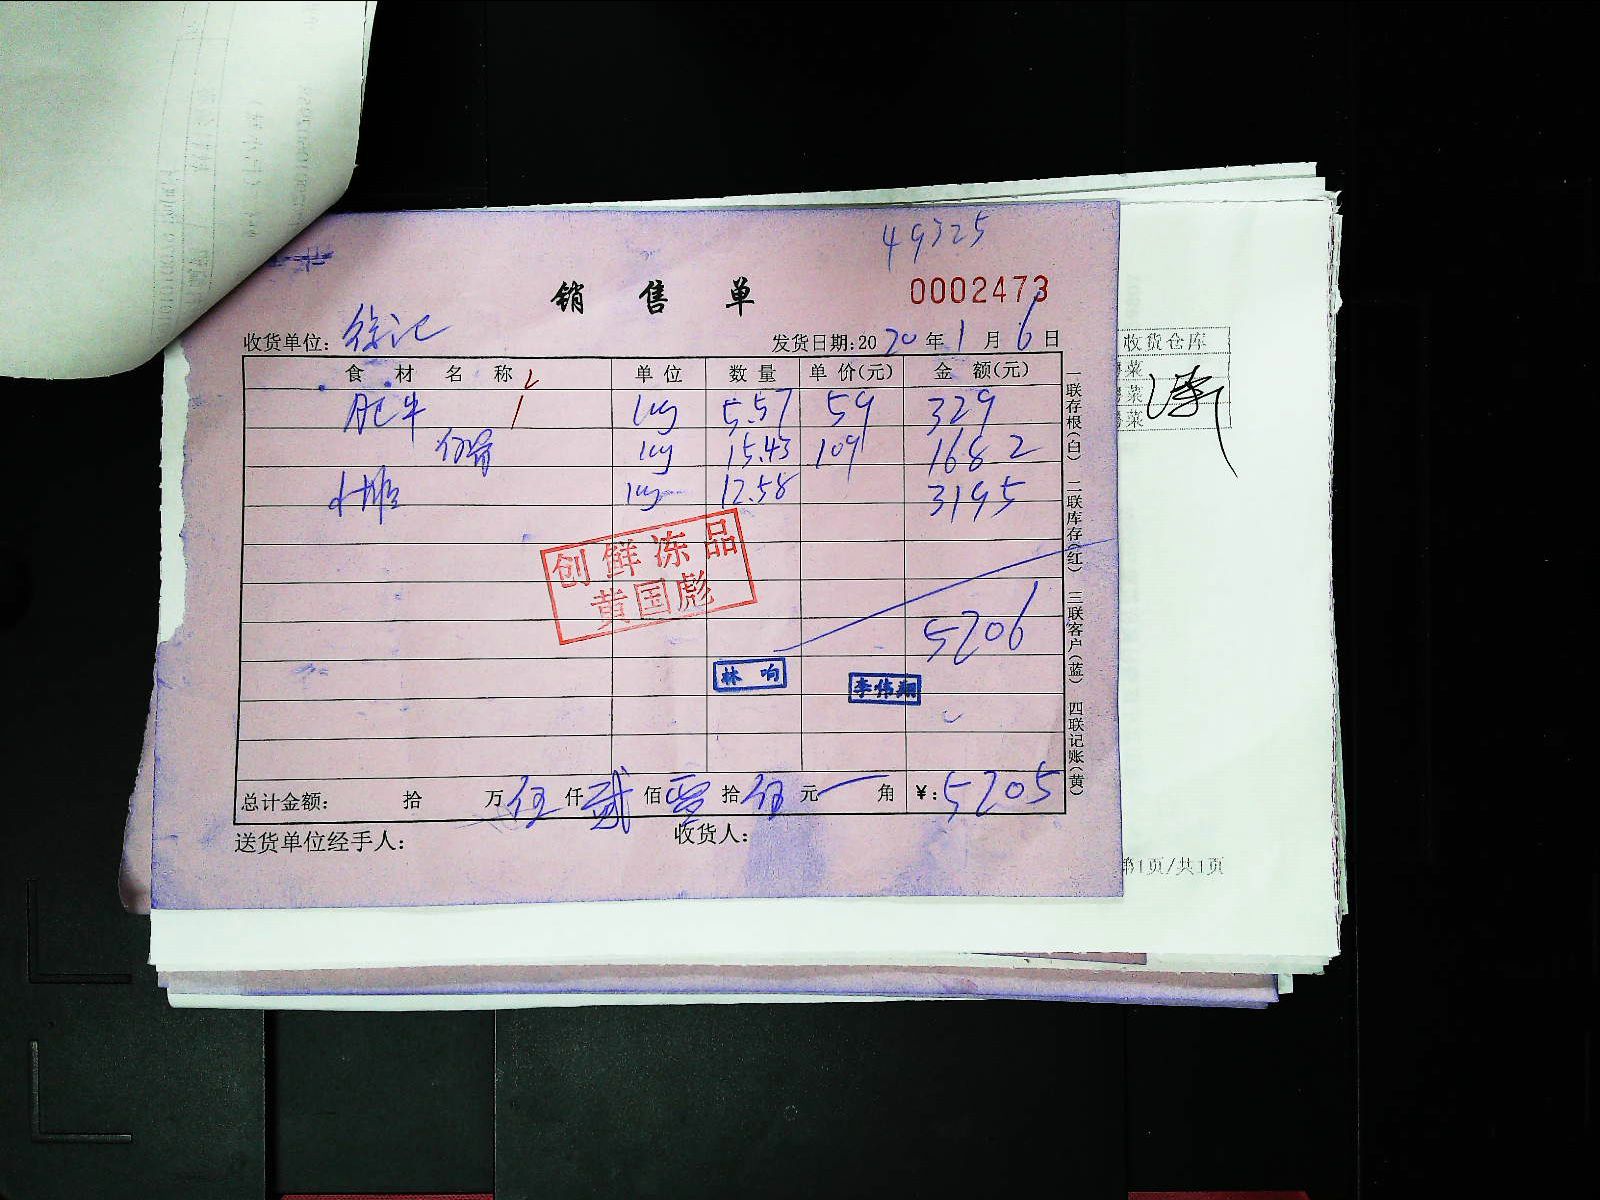 49325
销售单
0002473
收货单位: 徐记 发货日期:2020年1月6日
食材名称 单位 数量 单价(元) 金额(元)
肥牛 kg 5.57 59 329
kg 15.43 109 1682
kg 12.58 3195
创鲜冻品
黄国彪
5206
林响 李伟翔
总计金额: 拾 万 伍 仟 贰 佰 零 拾 伍 元 角 ¥:5205
送货单位经手人: 收货人:
一联存根(白) 二联库存(红) 三联客户(蓝) 四联记账(黄)
收货仓库
菜
菜
菜
第1页/共1页